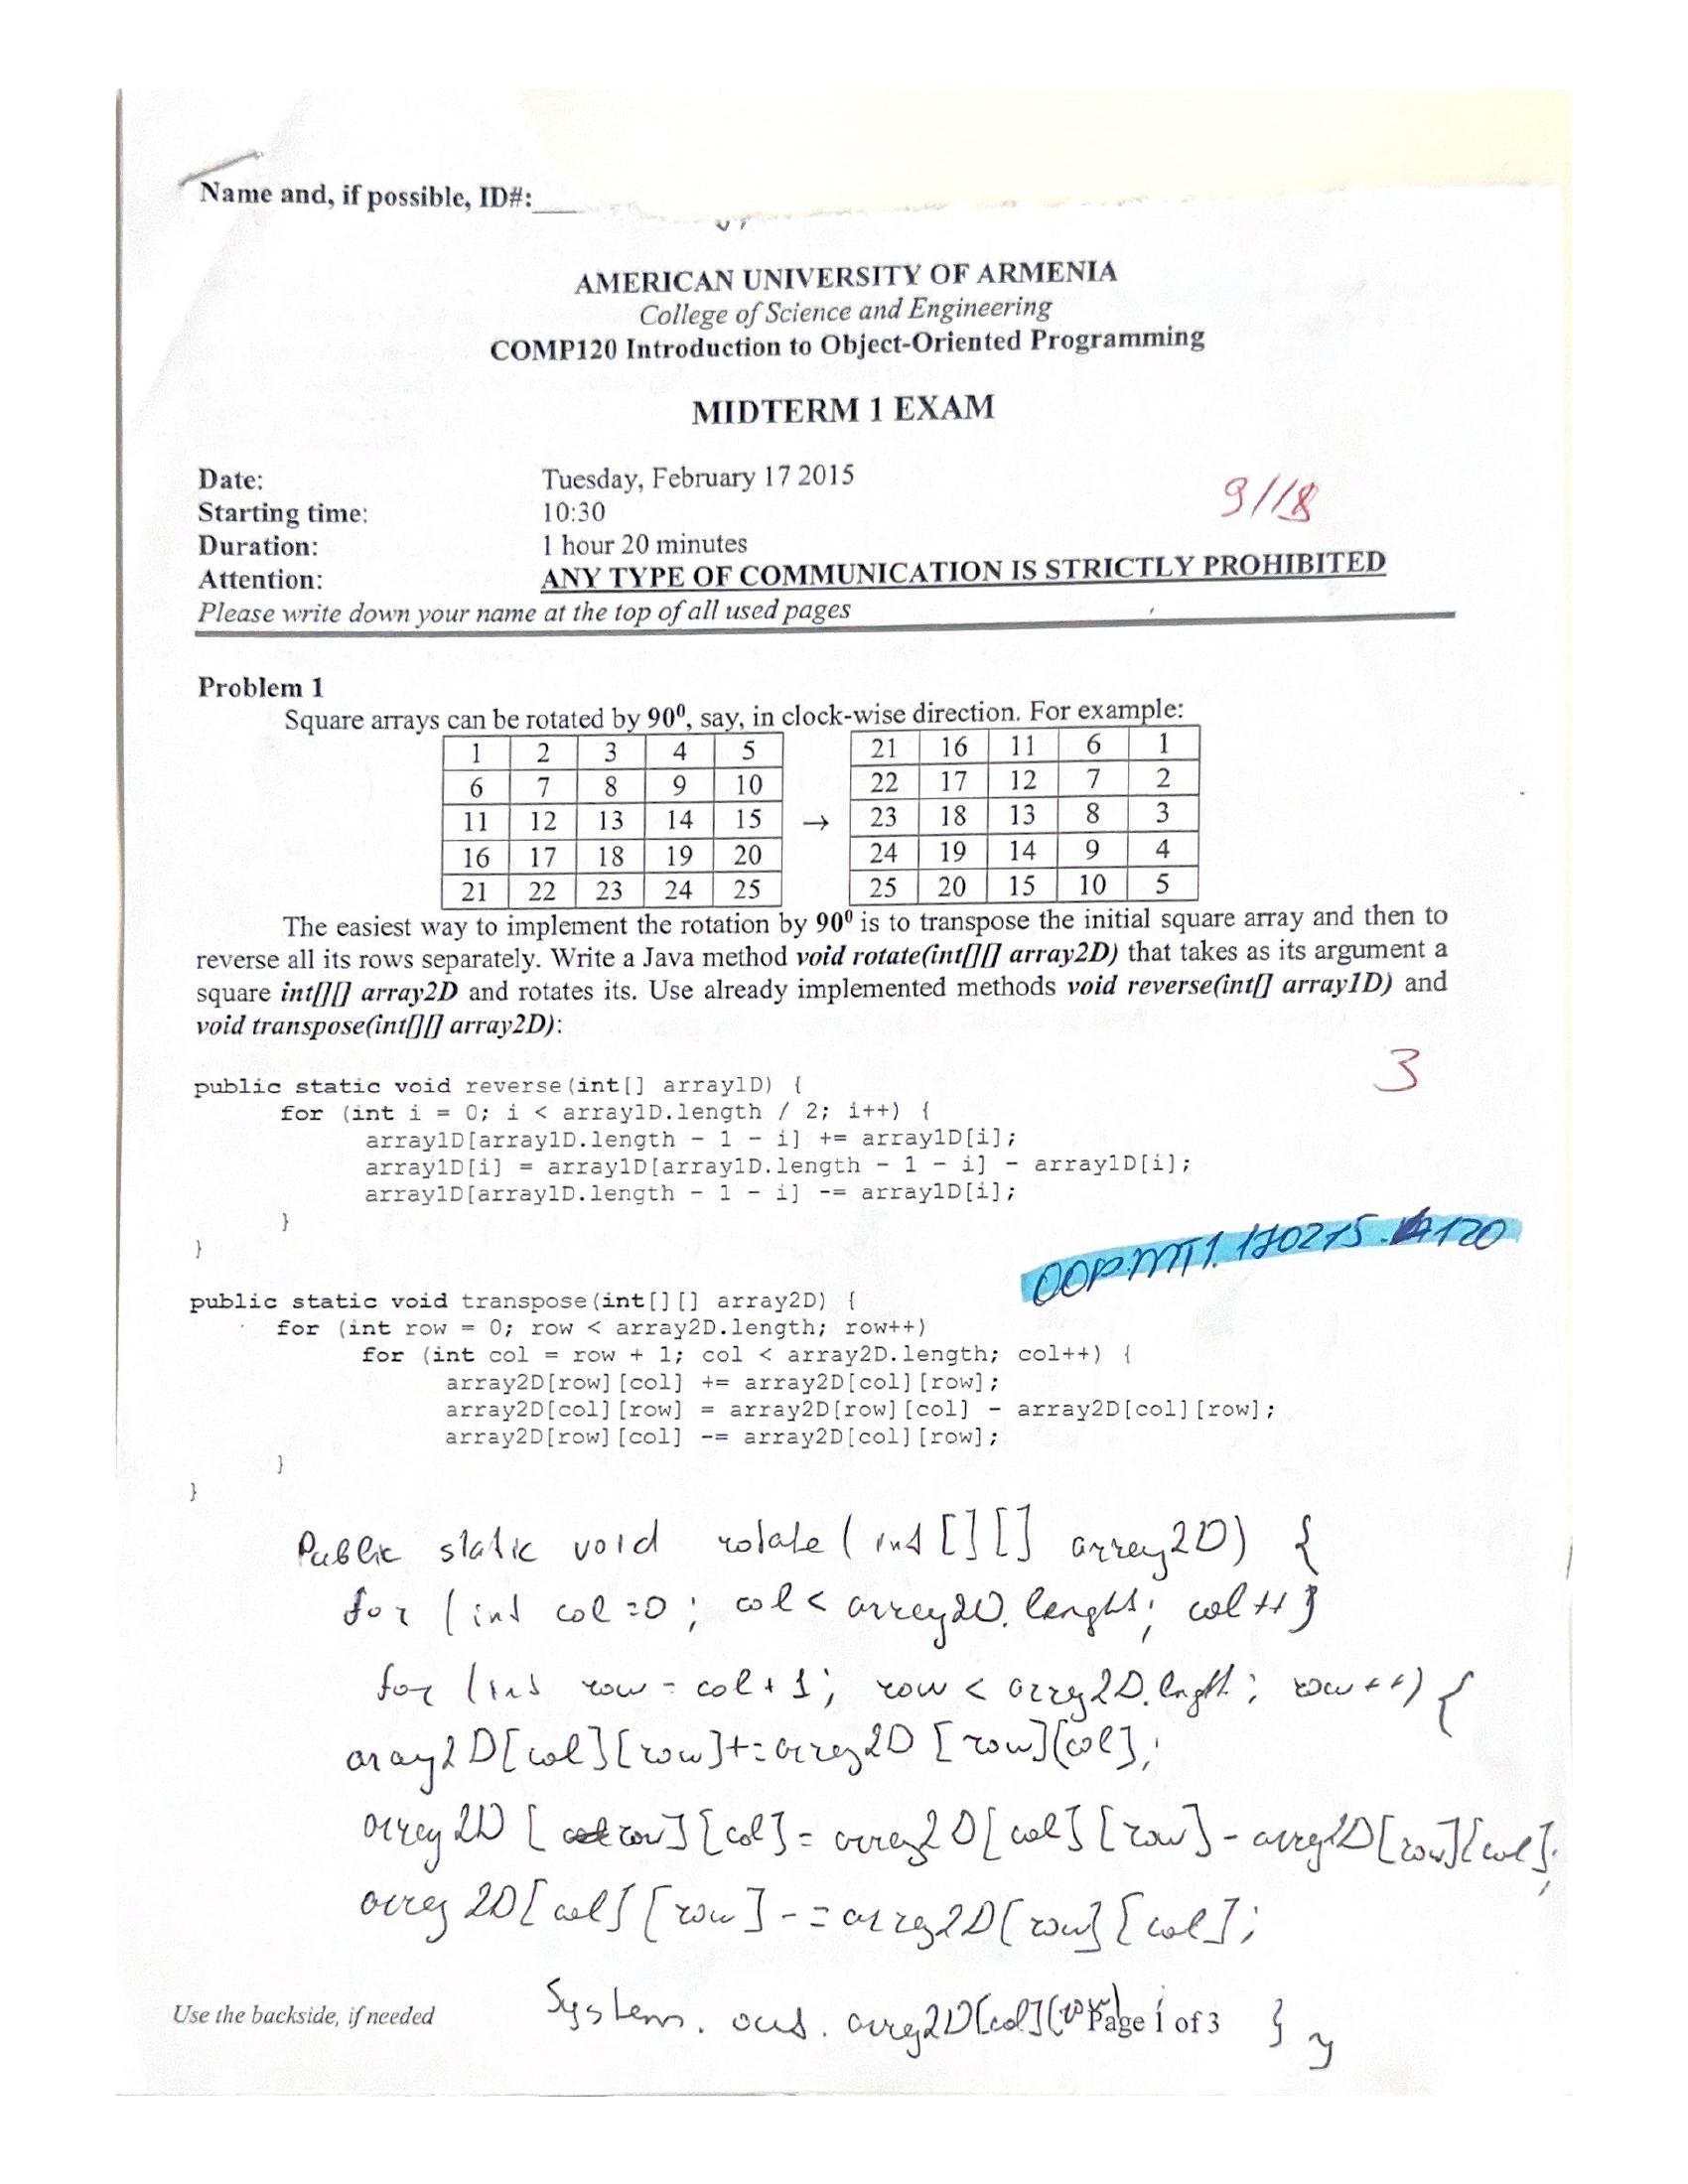 Name and, if possible, ID#:
AMERICAN UNIVERSITY OF ARMENIA
College of Science and Engineering
COMP120 Introduction to Object-Oriented Programming
MIDTERM 1 EXAM
Date: Tuesday, February 17 2015
Starting time: 10:30
9//18
Duration: 1 hour 20 minutes
Attention: ANY TYPE OF COMMUNICATION IS STRICTLY PROHIBITED
Please write down your name at the top of all used pages
Problem 1
Square arrays can be rotated by 90⁰, say, in clock-wise direction. For example:
1 2 3 4 5 21 16 11 6 1
6 7 8 9 10 22 17 12 7 2
11 12 13 14 15 → 23 18 13 8 3
16 17 18 19 20 24 19 14 9 4
21 22 23 24 25 25 20 15 10 5
The easiest way to implement the rotation by 90⁰ is to transpose the initial square array and then to
reverse all its rows separately. Write a Java method void rotate(int[][] array2D) that takes as its argument a
square int[][] array2D and rotates its. Use already implemented methods void reverse(int[] array1D) and
void transpose(int[][] array2D):
3
public static void reverse(int[] array1D) {
for (int i = 0; i < array1D.length / 2; i++) {
array1D[array1D.length - 1 - i] += array1D[i];
array1D[i] = array1D[array1D.length - 1 - i] - array1D[i];
array1D[array1D.length - 1 - i] -= array1D[i];
}
}
OOP.MT1.170215.120
public static void transpose(int[][] array2D) {
for (int row = 0; row < array2D.length; row++)
for (int col = row + 1; col < array2D.length; col++) {
array2D[row][col] += array2D[col][row];
array2D[col][row] = array2D[row][col] - array2D[col][row];
array2D[row][col] -= array2D[col][row];
}
}
Public static void rotate (int [][] array2D) {
for (int col =0 ; col < array2D.lenght; col ++}
for (int row = col + 1; row < array2D.lngth; row ++) {
aray2D[col][row]+=array2D [row][col];
array2D [row][col]= array2D[col][row]-array2D[row][col];
array2D[col][row] -= array2D[row][col];
System. out. array2D[col][row] } }
Use the backside, if needed Page 1 of 3